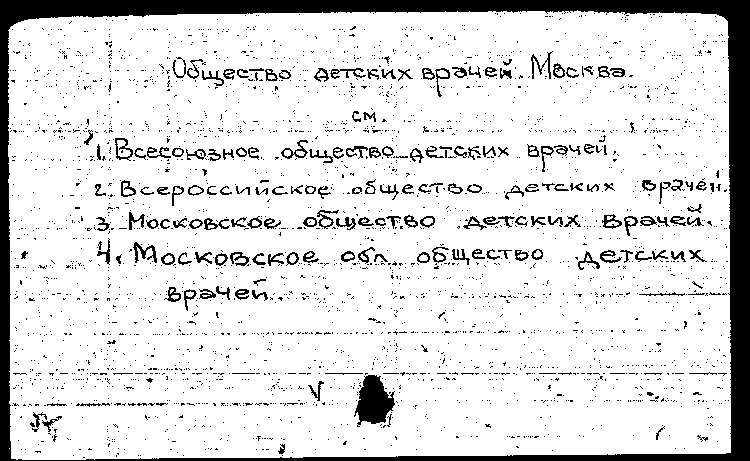 Общество детских врачей. Москва.
см.
1. Всесоюзное общество детских врачей.
2. Всероссийское общество детских врачей.
3. Московское общество детских врачей.
4. Московское обл. общество детских
врачей.
V